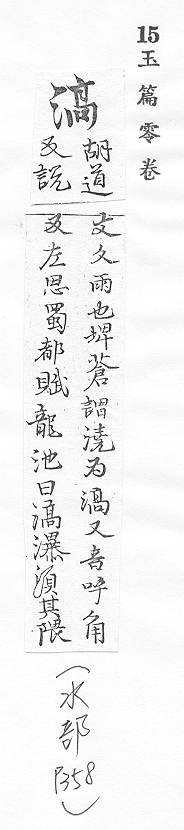 15玉篇零卷
滈
胡道
反說
文久雨也埤蒼謂澆為滈又音呼角
反左思蜀都賦龍池曰滈瀑濆其隈
(水部P358)